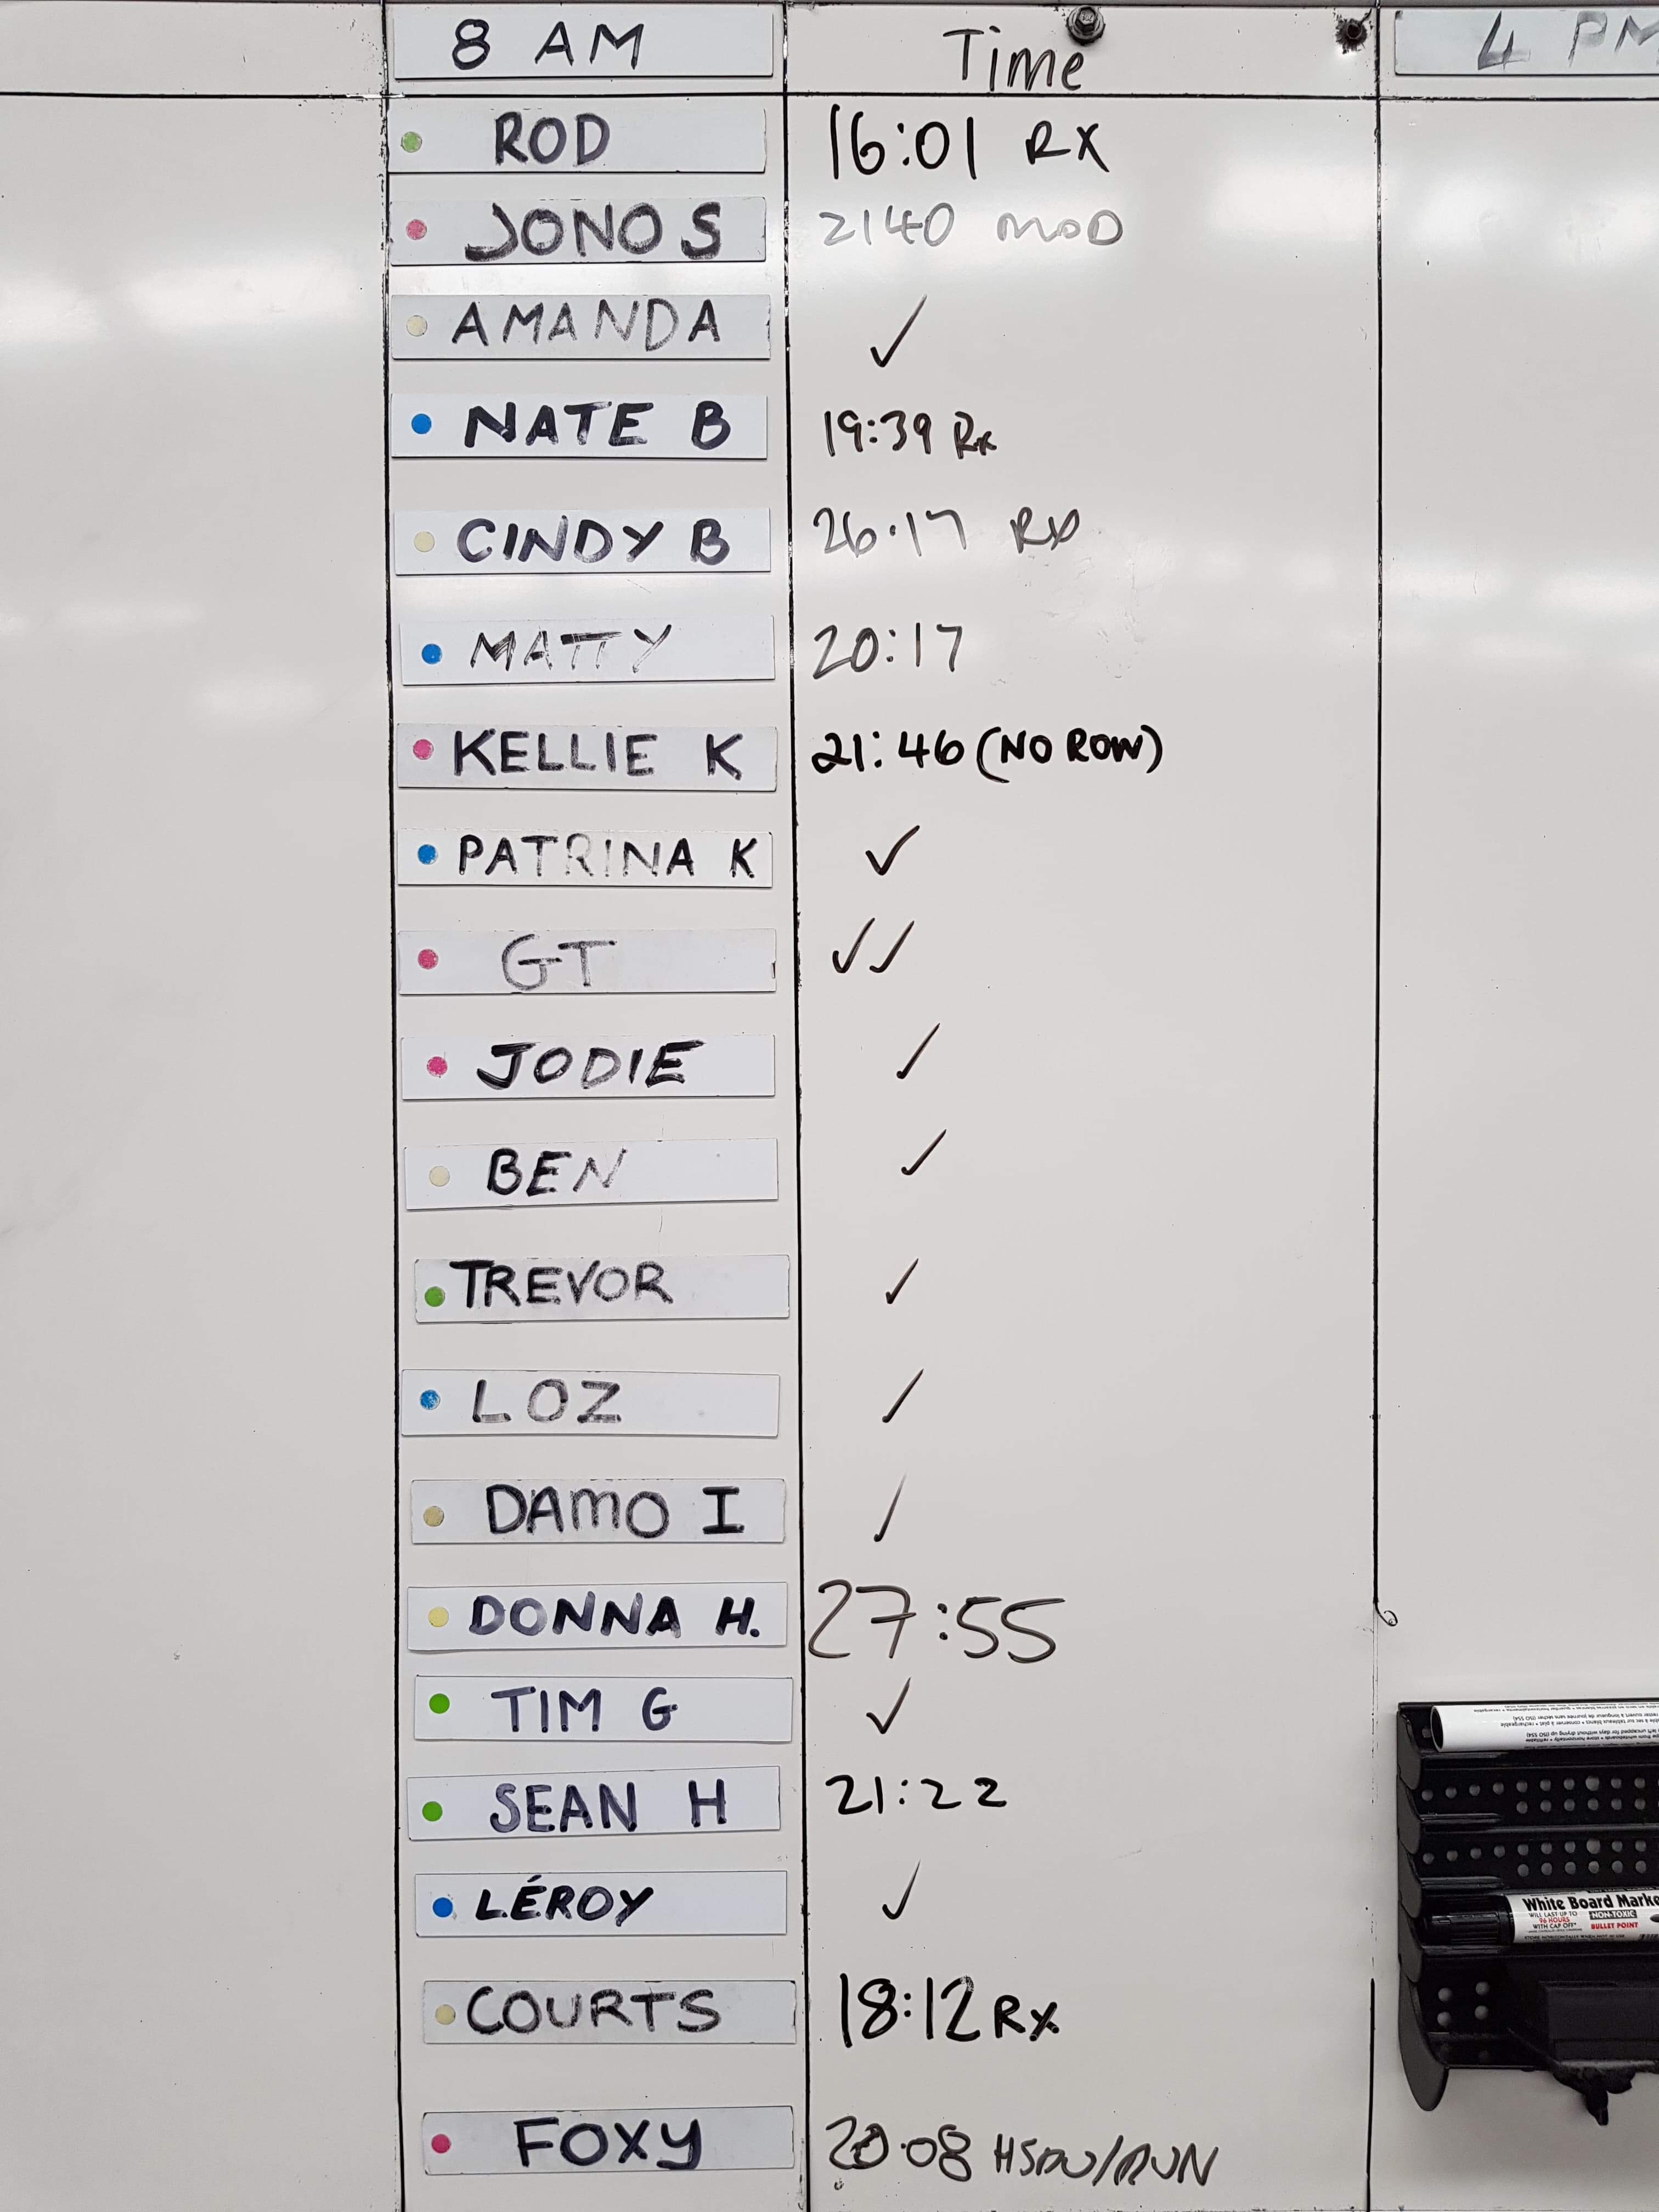 8 AM Time 4 PM
ROD 16:01 RX
JONO S 2140 MOD
AMANDA ✓
NATE B 19:39 Rx
CINDY B 26·17 RX
MATTY 20:17
KELLIE K 21:46 (NO ROW)
PATRINA K ✓
GT ✓✓
JODIE ✓
BEN ✓
TREVOR ✓
LOZ ✓
DAMO I ✓
DONNA H. 27:55
TIM G ✓
SEAN H 21:22
LÉROY ✓
COURTS 18:12 Rx
FOXY 20·08 /RUN
White Board Marke
WILL LAST UP TO
96 HOURS
WITH CAP OFF*
NON-TOXIC
BULLET POINT